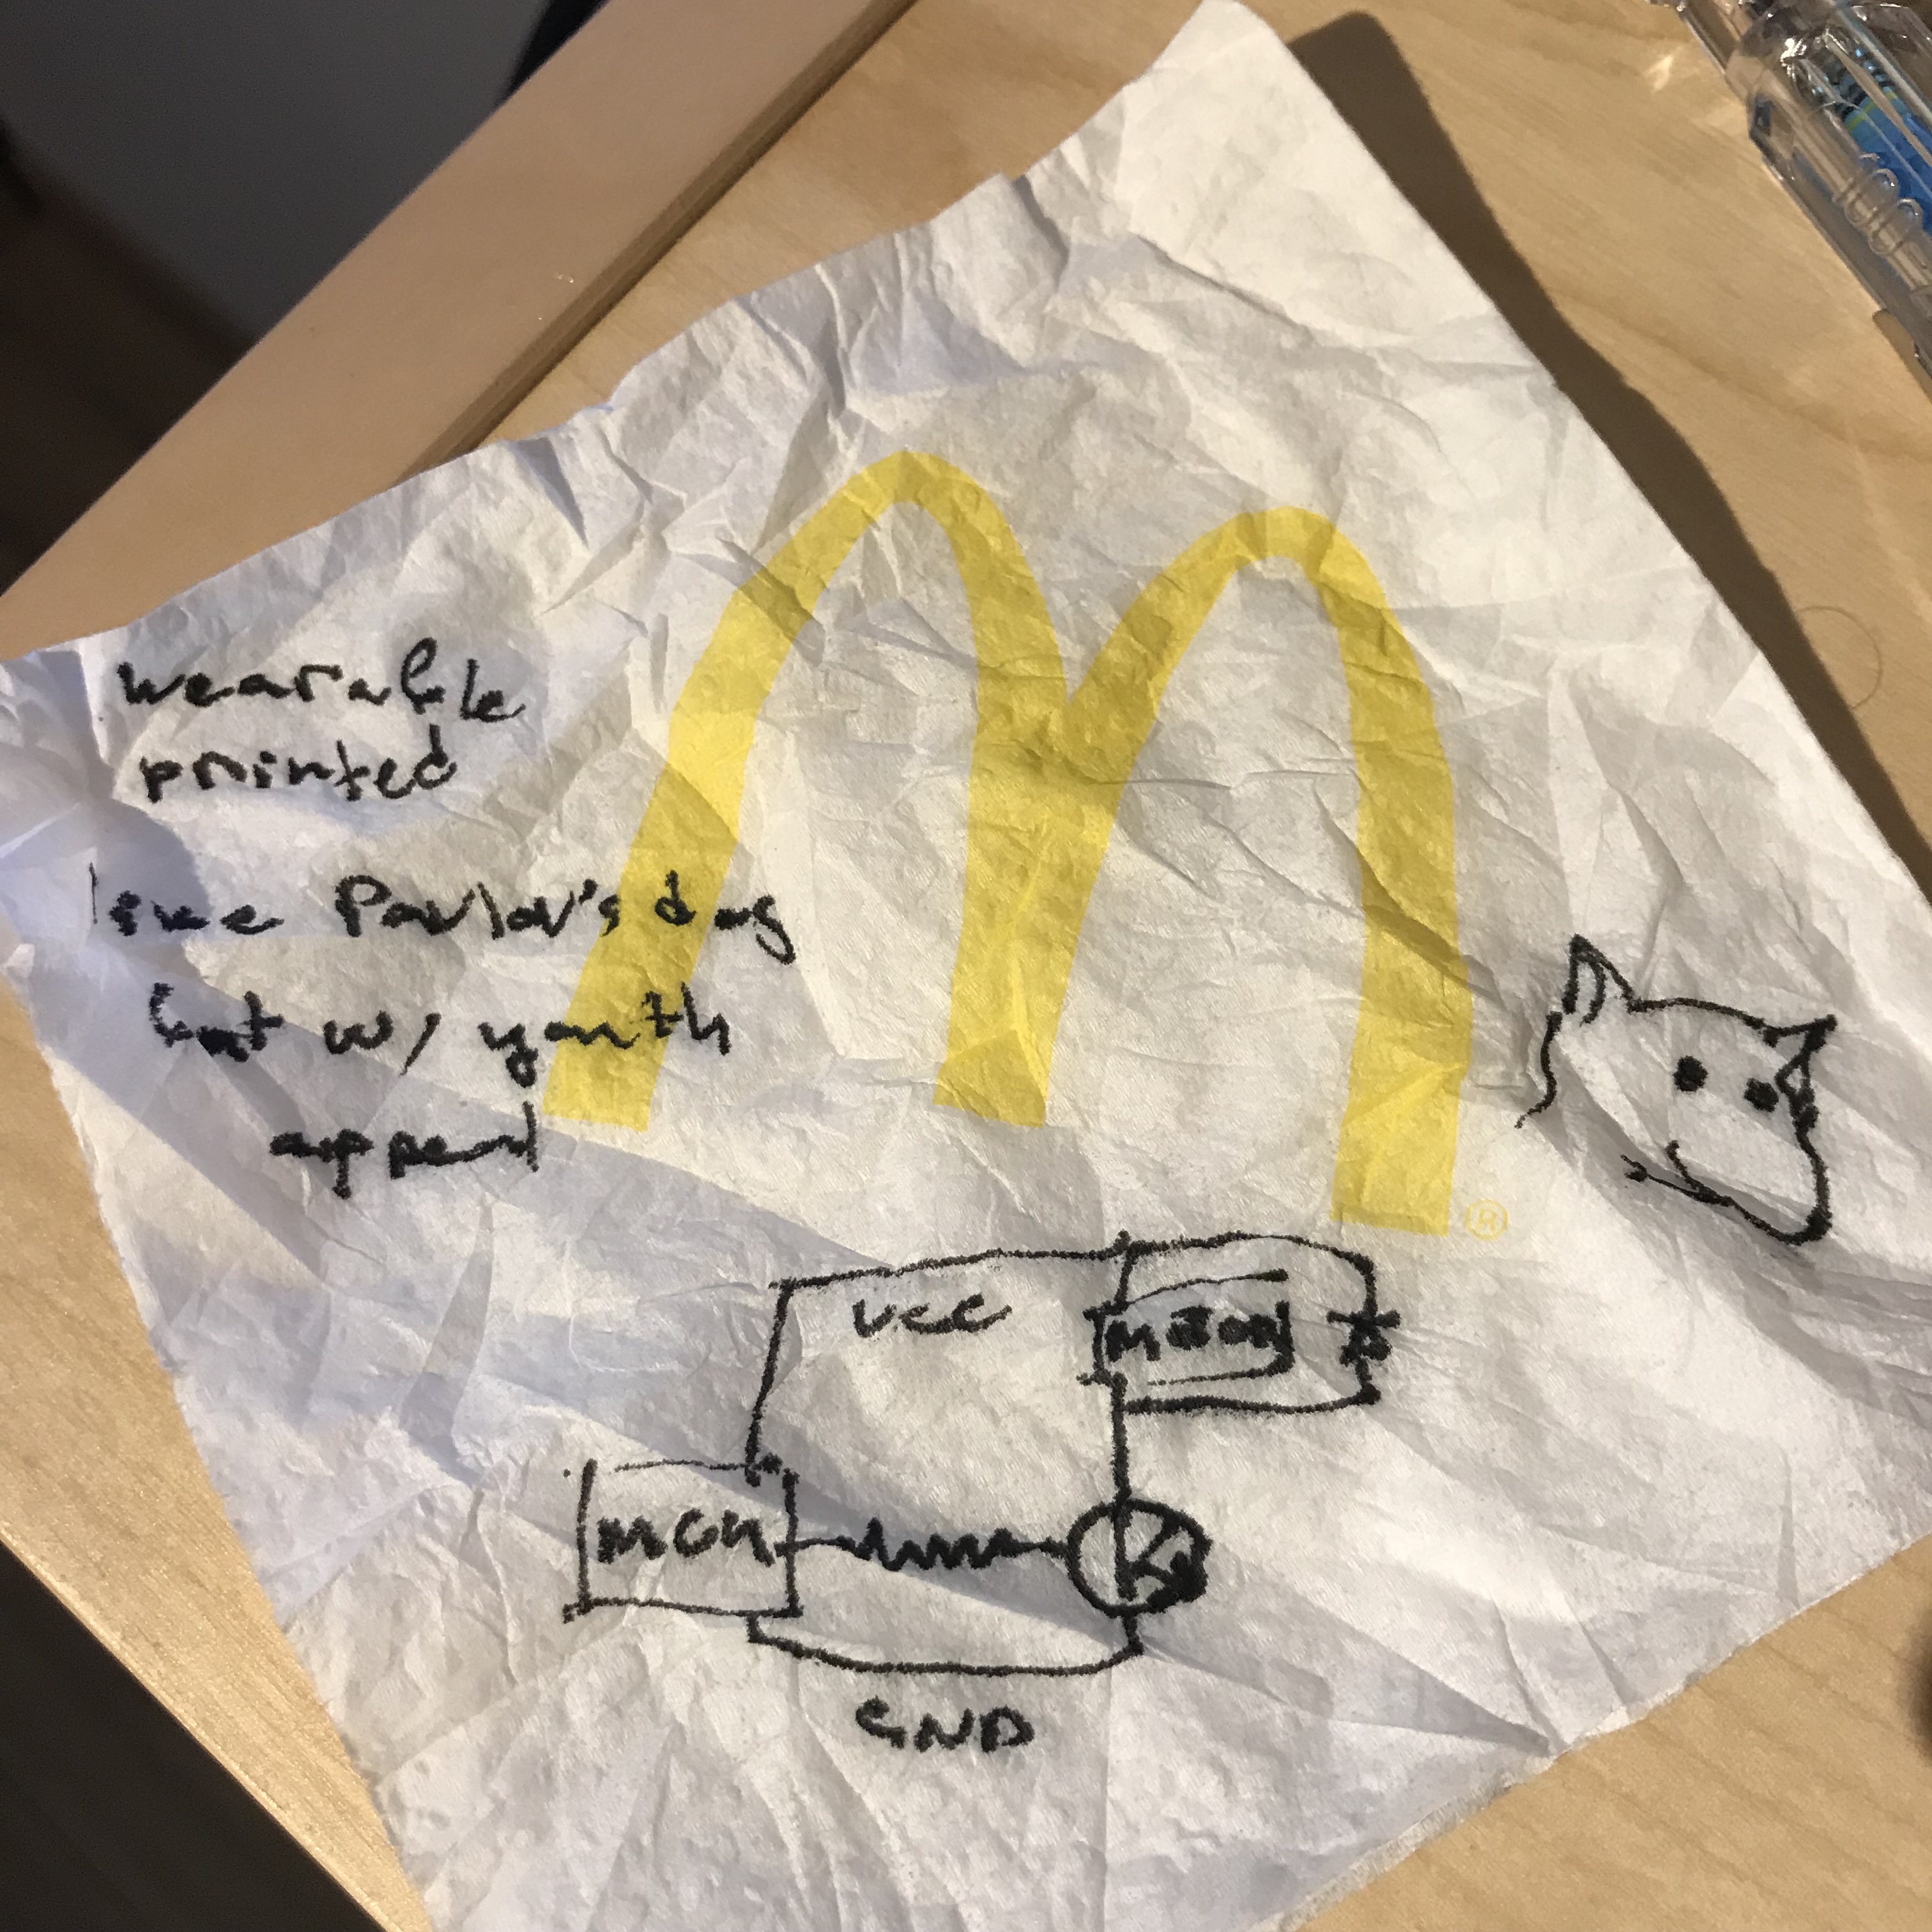 wearable
printed
like Pavlov's dog
but w/ youth
appeal
M
®
VCC
MOTOR
MCU
GND